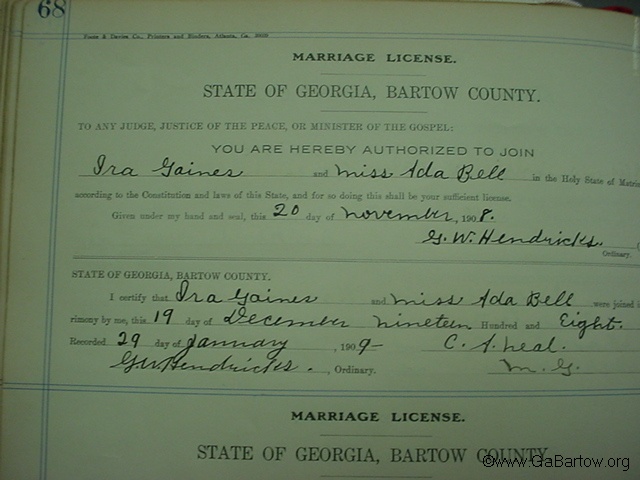 68
Foote & Davies Co., Printers and Binders, Atlanta, Ga.
MARRIAGE LICENSE.
STATE OF GEORGIA, BARTOW COUNTY.
TO ANY JUDGE, JUSTICE OF THE PEACE, OR MINISTER OF THE GOSPEL:
YOU ARE HEREBY AUTHORIZED TO JOIN
Ira Gaines and Miss Ada Bell in the Holy State of Matrim
according to the Constitution and laws of this State, and for so doing this shall be your sufficient license.
Given under my hand and seal, this 20 day of November, 1908.
G. W. Hendricks.
Ordinary.
STATE OF GEORGIA, BARTOW COUNTY.
I certify that Ira Gaines and Miss Ada Bell were joined
rimony by me, this 19 day of December nineteen Hundred and Eight.
Recorded 29 day of January, 1909- C. A. Neal.
GW Hendricks., Ordinary. M. G.
MARRIAGE LICENSE.
STATE OF GEORGIA, BARTOW COUNTY.
©www.GaBartow.org